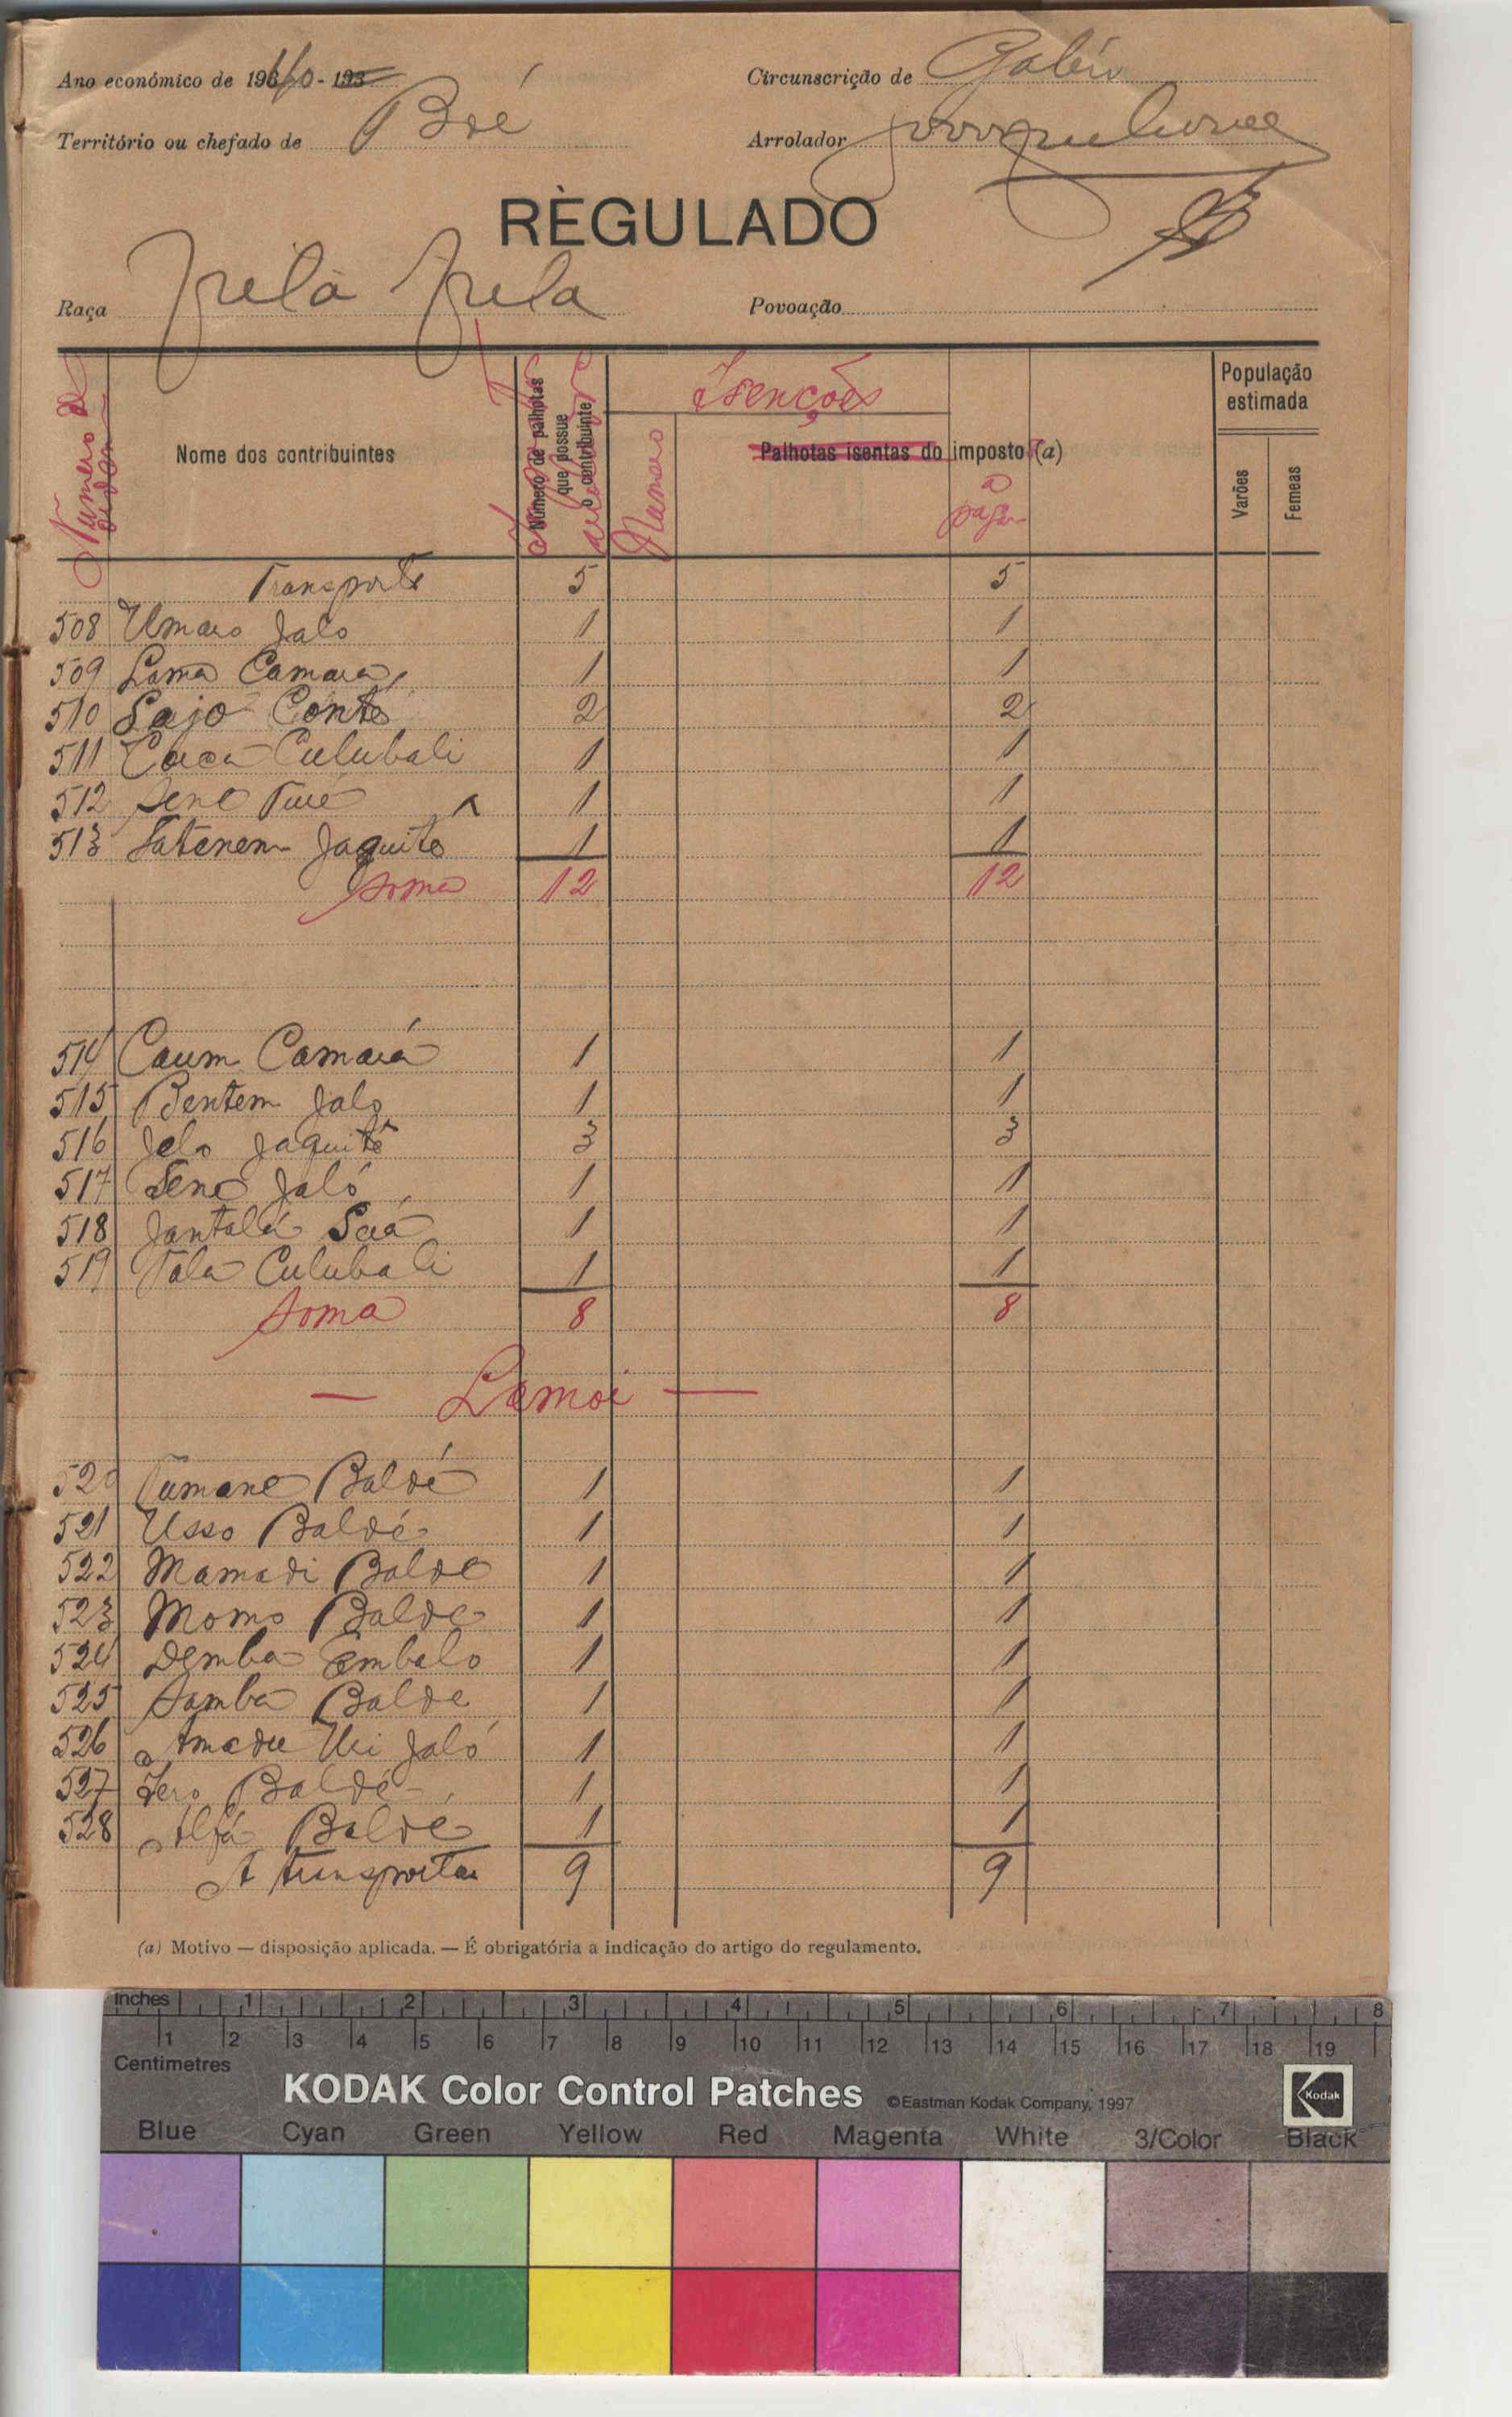 Ano económico de 1940 - 193
Circunscrição de Gabú
Território ou chefado de Boé
Arrolador
RÈGULADO
Raça Jrela Jrela
Povoação
Número de
Nome dos contribuintes
Número de palhotas que possue o contribuinte
Isenções
Número
Palhotas isentas do imposto (a)
a pagar
População estimada
Varões
Femeas
Transporte 5 5
508 Umaro Jalo 1 1
509 Lama Camará 1 1
510 Sajo Conté 2 2
511 Caca Culubali 1 1
512 Sene Turé 1 1
513 Satenem Jaquité 1 1
soma 12 12
514 Caum Camará 1 1
515 Bentem Jalo 1 1
516 Jelo Jaquité 3 3
517 Sene Jaló 1 1
518 Jantalá Saá 1 1
519 Tala Culubali 1 1
soma 8 8
— Lamoi —
520 Tumane Baldé 1 1
521 Usso Baldé 1 1
522 Mamadi Balde 1 1
523 Momo Balde 1 1
524 Demba Embalo 1 1
525 Samba Balde 1 1
526 Amadu Uri Jaló 1 1
527 Iero Baldé 1 1
528 Alfá Baldé 1 1
A transportar 9 9
(a) Motivo — disposição aplicada. — É obrigatória a indicação do artigo do regulamento.
Inches 1 2 3 4 5 6 7 8
1 2 3 4 5 6 7 8 9 10 11 12 13 14 15 16 17 18 19
Centimetres
KODAK Color Control Patches ©Eastman Kodak Company, 1997 Kodak
Blue Cyan Green Yellow Red Magenta White 3/Color Black